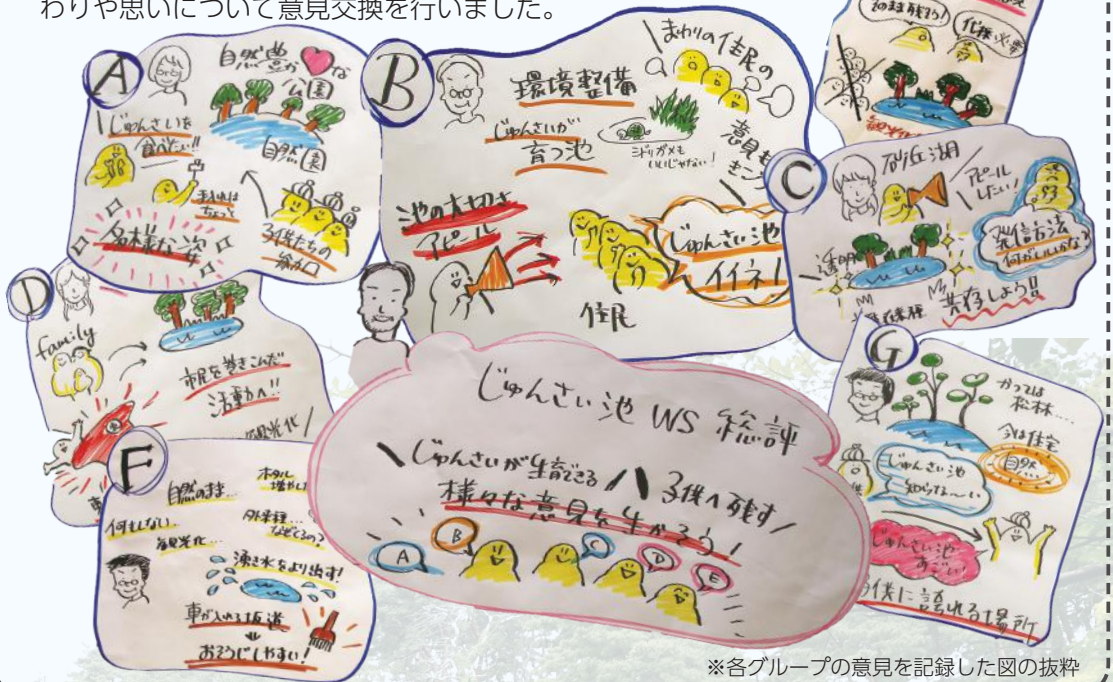 わりや思いについて意見交換を行いました。
A
自然豊かな
公園
じゅんさいを
食べたい!!
自然園
手入れは
ちょっと
多様な姿
子供たちの
B
環境整備
まわりの住民の
意見も
じゅんさいが
育つ池
ミドリガメも
いいじゃない!
池の大切さ
アピール
じゅんさい池
イイネ!
住民
そのまま残そう!
C
砂丘湖
アピール
したい!
発信方法
何がいいかな?
透明
共存しよう!!
D
family
市民を巻きこんだ
活動へ!!
観光化
F
自然のまま…
ホタル
増やし
何もしない
観光化…
外来種…
なぜでるの?
湧き水をより出す!
車が入れる坂道
おそうじしやすい!
じゅんさい池 WS 総評
じゅんさいが生育できる
子供へ残す
様々な意見を生かそう!
A
B
C
D
E
G
かつては
松林…
今は住宅
自然
じゅんさい池
知らな〜い
じゅんさい池
すごい!
子供に誇れる場所
※各グループの意見を記録した図の抜粋